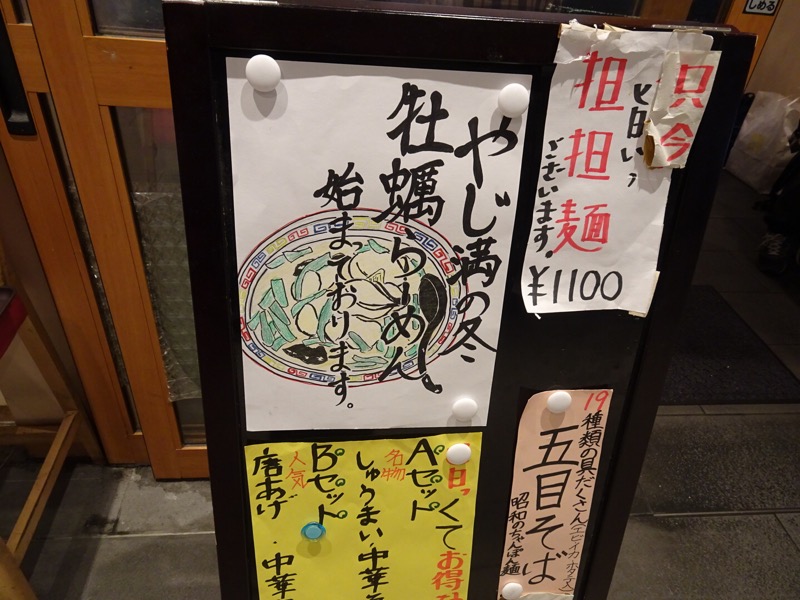 しめる
やじ満の冬
牡蠣らーめん
始まっております。
只今
白い
担担麺
ございます。
¥1100
くてお得
Aセット
名物
しゅうまい 中華
Bセット
人気
唐あげ・中華
19種類の具だくさん(エビイカホタテ入)
五目そば
昭和のちゃんぽん麺